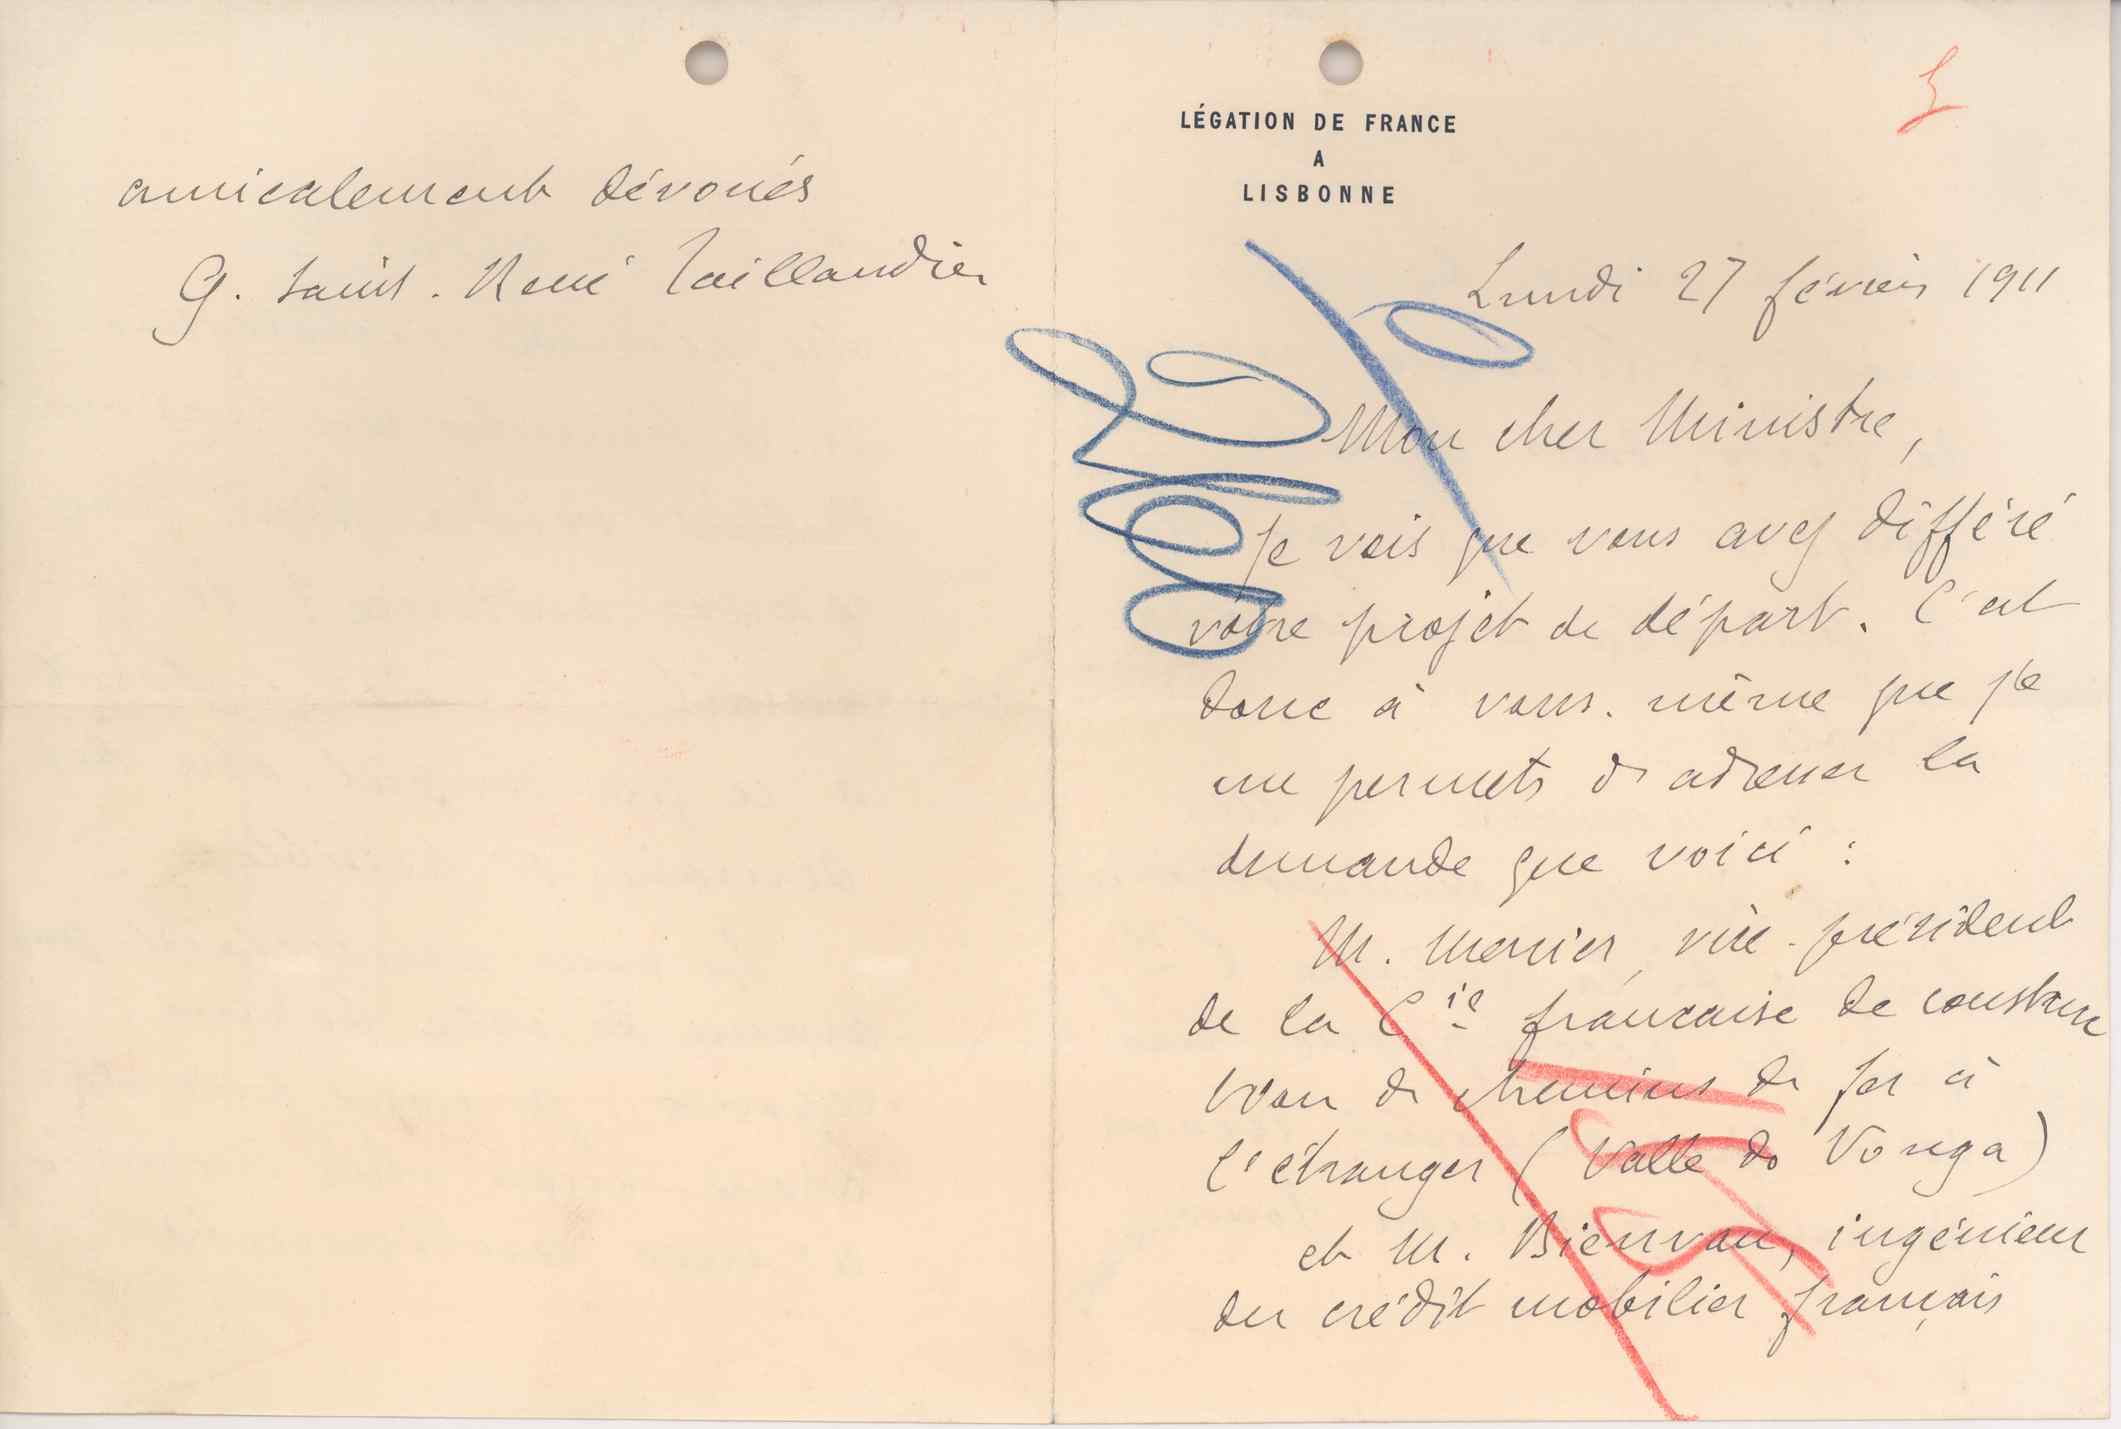 amicalement dévoués
G. Saint-René Taillandier
LÉGATION DE FRANCE
A
LISBONNE
Lundi 27 février 1911
Mon cher Ministre,
Je vois que vous avez différé
votre projet de départ. C'est
donc à vous-même que je
me permets d'adresser la
demande que voici :
M. Mercier, vice-président
de la Cie française de construc
tion de chemins de fer à
l'étranger (Valle do Vouga)
et M.
ingénieur
du crédit mobilier français